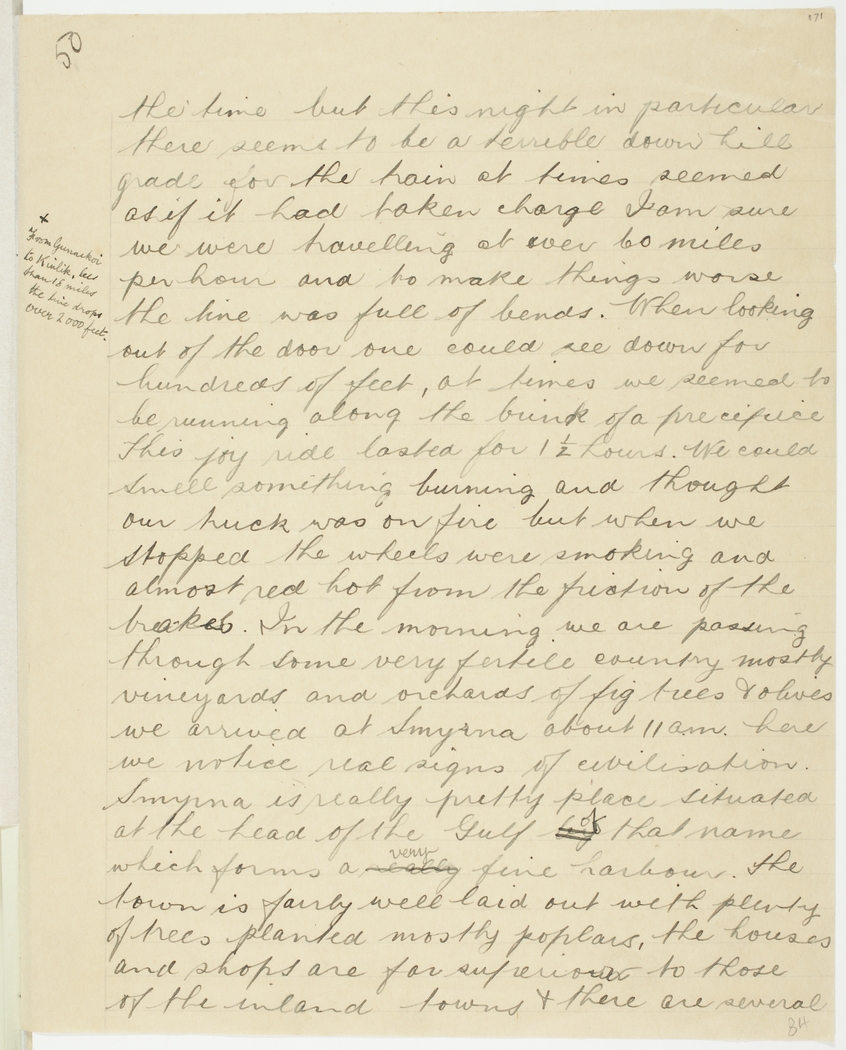 171
50
the time but this night in particular
there seems to be a terrible down hill
grade for the train at times seemed
as if it had taken charge I am sure
we were travelling at over 60 miles
per hour and to make things worse
the line was full of bends. When looking
out of the door one could see down for
hundreds of feet, at times we seemed to
be running along the brink of a precipice
This joy ride lasted for 1 1/2 hours. We could
smell something burning and thought
our truck was on fire but when we
stopped the wheels were smoking and
almost red hot from the friction of the
brakes. In the morning we are passing
through some very fertile country mostly
vineyards and orchards of fig trees & olives
we arrived at Smyrna about 11 am. here
we notice real signs of civilisation.
Smyrna is really pretty place situated
at the head of the Gulf by of that name
which forms a really very fine harbour. The
town is fairly well laid out with plenty
of trees planted mostly poplars, the houses
and shops are far superior to those
of the inland towns & there are several
84
x
From
to Kinlik, less
than 16 miles
the line drops
over 2000 feet.